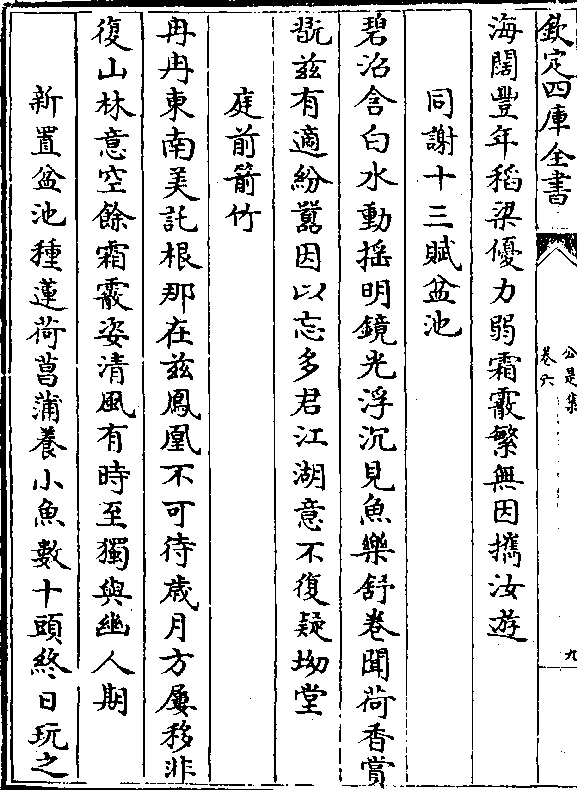 欽定四庫全書
公是集
卷六
九
海闊豐年稻梁優力弱霜霰繁無因攜汝遊
同謝十三賦盆池
碧沼含白水動揺明鏡光浮沉見魚樂舒卷聞荷香賞
翫兹有適紛囂因以忘多君江湖意不復疑坳堂
庭前箭竹
冉冉東南美託根那在兹鳳凰不可待歲月方屢移非
復山林意空餘霜霰姿清風有時至獨與幽人期
新置盆池種蓮荷菖蒲養小魚數十頭終日玩之